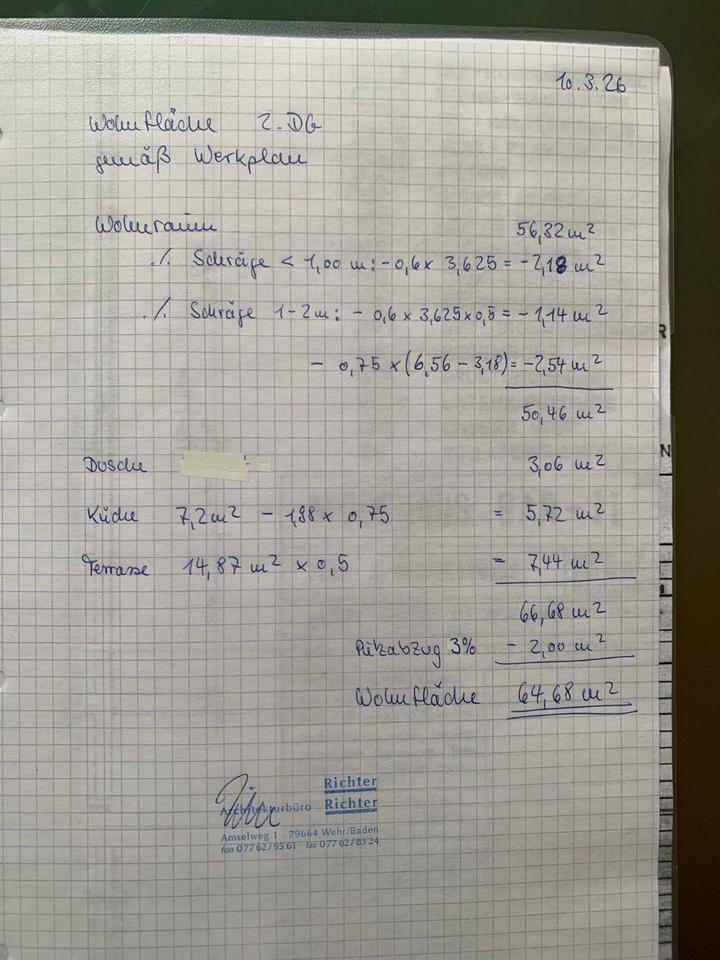 10.3.26
Wohnfläche 2.DG
gemäß Werkplan
Wohnraum 56,32 m²
./. Schräge < 1,00 m: - 0,6 x 3,625 = - 2,18 m²
./. Schräge 1-2m: - 0,6 x 3,625 x 0,5 = - 1,14 m²
- 0,75 x (6,56 - 3,18) = - 2,54 m²
50,46 m²
Dusche 3,06 m²
Küche 7,2 m² - 1,98 x 0,75 = 5,72 m²
Terrasse 14,87 m² x 0,5 = 7,44 m²
66,68 m²
Putzabzug 3% - 2,00 m²
Wohnfläche 64,68 m²
Richter
Architekturbüro Richter
Amselweg 1 79664 Wehr/Baden
fon 07762/9561 fax 07762/8324
R
N